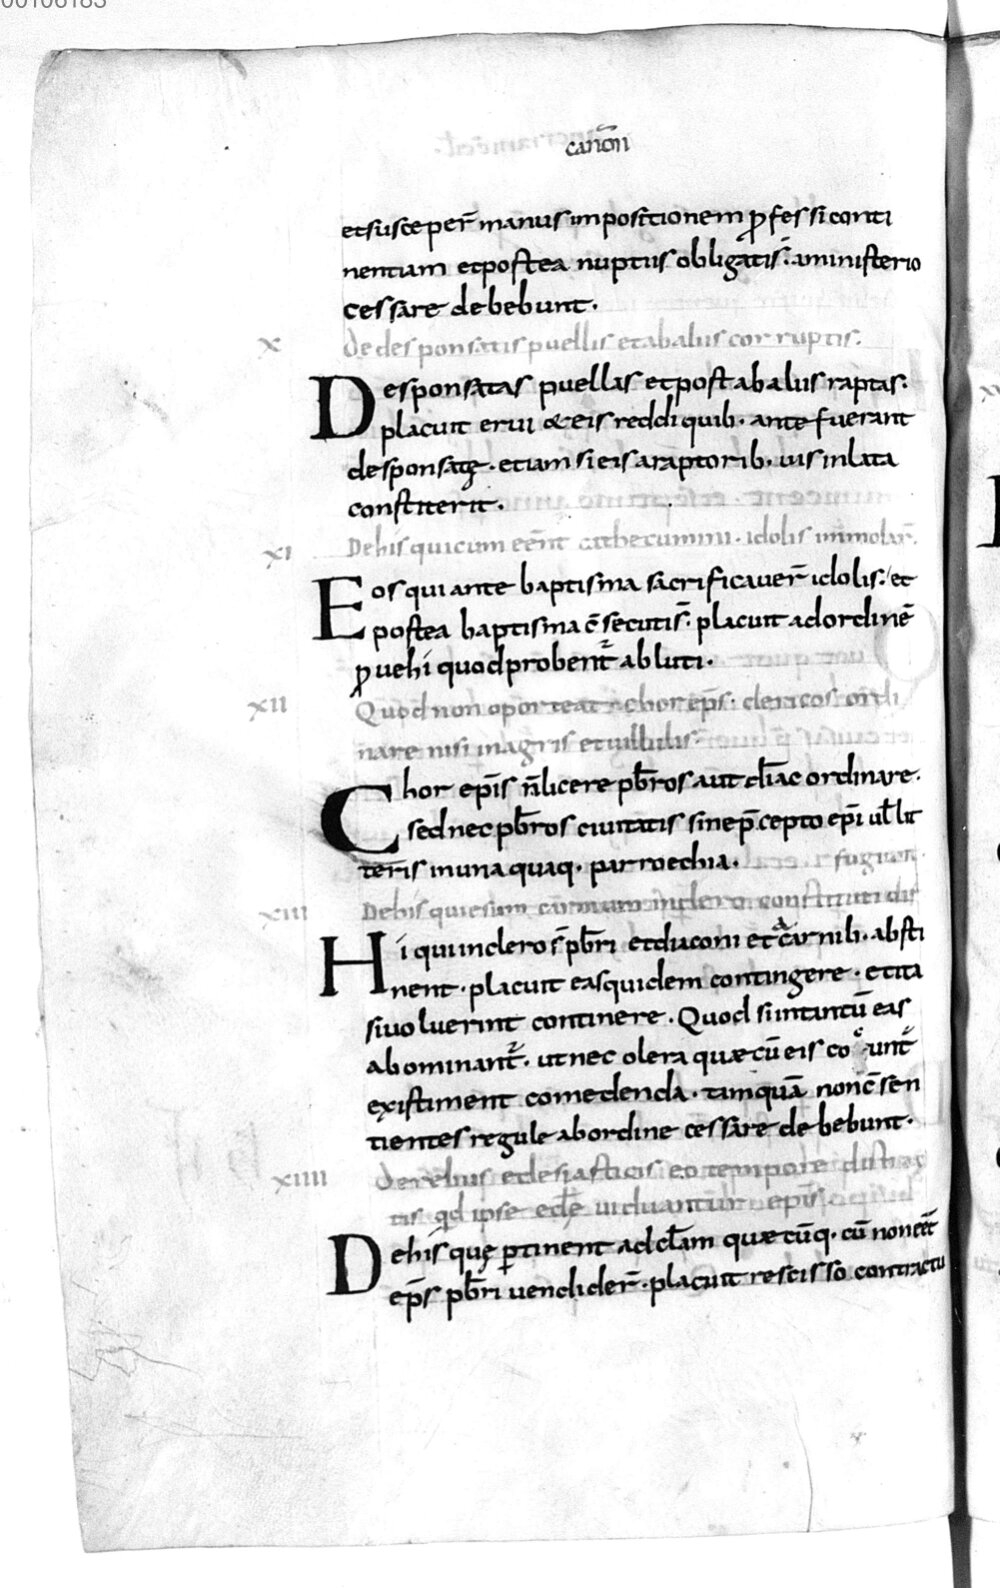 00106183
canoñ
et susceper̄ manus impositionem p̱fessi conti
nentiam et postea nuptiis obligatis; a ministerio
cessare debebunt.
X De desponsatis puellis et ab aliis corruptis.
Desponsatas puellas et post ab aliis raptas.
placuit erui & eis reddi quib. ante fuerant
desponsatę. etiam si eis a raptorib. uis inlata
constiterit.
XI De his qui cum eēnt cathecumini. idolis immolar̄.
Eos qui ante baptisma sacrificauer̄ idolis; et
postea baptisma c̄secuti s̄. placuit ad ordinē
p̱uehi quod probent̄ abluti.
XII Quod non oporteat chorep̄s. clericos ordi
nare nisi in agris et uillulis
Chor ep̄is n̄ licere pb̄ros aut diac̄ ordinare.
sed nec pb̄ros ciuitatis sine p̄cepto ep̄i ul̄ lit
teris in unaquaq. parroechia.
fugiunt
XIII De his qui cum in clero constituti
Hi qui in clero s̄ pb̄ri et diaconi et a carnib. absti
nent. placuit eas quidem contingere. et ita
si uoluerint continere. Quod si in tantū eas
abominant̄. ut nec olera quæ cū eis coquunt̄
existiment comedenda. tamquā non c̄sen
tientes regule ab ordine cessare debebunt.
XIIII De rebus eclesiasticis eo tempore distrac
tis qd̄ ipse ecl̄e uiduantur ep̄is
De his quę p̱tinent ad ecl̄am quæcūq. cū non eēt
ep̄s pb̄ri uendider̄. placuit rescisso contractu